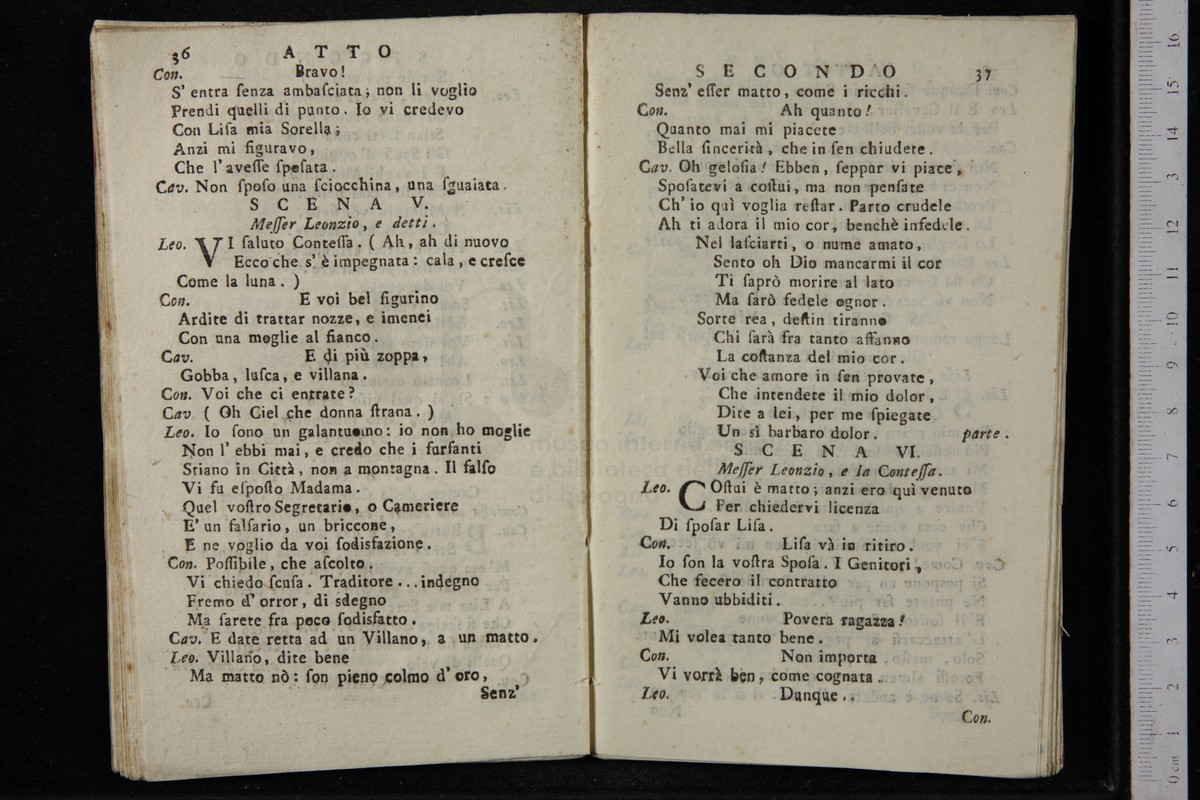 36 A T T O
Con. Bravo!
S' entra ſenza ambaſciata; non li voglio
Prendi quelli di punto. Io vi credevo
Con Liſa mia Sorella;
Anzi mi figuravo,
Che l'aveſſe ſpoſata.
Cav. Non ſpoſo una ſciocchina, una ſguaiata.
S C E N A V.
Meſſer Leonzio, e detti.
Leo. VI ſaluto Conteſſa. ( Ah, ah di nuovo
Ecco che s' è impegnata: cala, e creſce
Come la luna. )
Con. E voi bel figurino
Ardite di trattar nozze, e imenei
Con una moglie al fianco.
Cav. E di più zoppa,
Gobba, luſca, e villana.
Con. Voi che ci entrate?
Cav ( Oh Ciel che donna ſtrana. )
Leo. Io ſono un galantuomo: io non ho moglie
Non l' ebbi mai, e credo che i furfanti
Stiano in Città, non a montagna. Il falſo
Vi fu eſpoſto Madama.
Quel voſtro Segretario, o Cameriere
E' un falſario, un briccone,
E ne voglio da voi ſodisfazione.
Con. Poſſibile, che aſcolto.
Vi chiedo ſcuſa. Traditore ...indegno
Fremo d' orror, di sdegno
Ma ſarete fra poco ſodisfatto.
Cav. E date retta ad un Villano, a un matto.
Leo. Villano, dite bene
Ma matto nò: ſon pieno colmo d' oro,
Senz'
S E C O N D O 37
Senz' eſſer matto, come i ricchi.
Con. Ah quanto!
Quanto mai mi piacete
Bella ſincerità, che in ſen chiudete.
Cav. Oh geloſia! Ebben, ſeppur vi piace,
Spoſatevi a coſtui, ma non penſate
Ch' io quì voglia reſtar. Parto crudele
Ah ti adora il mio cor, benchè infedele.
Nel laſciarti, o nume amato,
Sento oh Dio mancarmi il cor
Ti ſaprò morire al lato
Ma farò fedele ognor.
Sorte rea, deſtin tiranno
Chi ſarà fra tanto affanno
La coſtanza del mio cor.
Voi che amore in ſen provate,
Che intendete il mio dolor,
Dite a lei, per me ſpiegate
Un sì barbaro dolor. parte.
S C E N A VI.
Meſſer Leonzio, e la Conteſſa.
Leo. COſtui è matto; anzi ero quì venuto
Per chiedervi licenza
Di ſpoſar Liſa.
Con. Liſa và in ritiro.
Io ſon la voſtra Spoſa. I Genitori,
Che fecero il contratto
Vanno ubbiditi.
Leo. Povera ragazza!
Mi volea tanto bene.
Con. Non importa
Vi vorrà ben, come cognata.
Leo. Dunque..
Con.